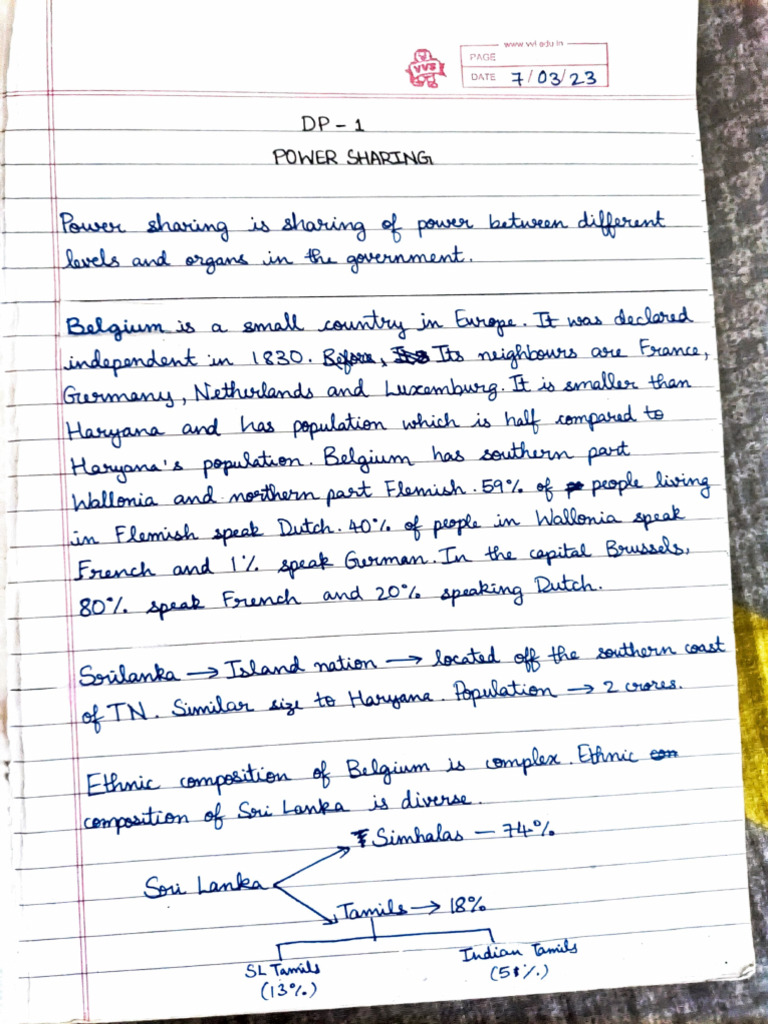 www.vvl.edu.in
VVS
PAGE
DATE 7/03/23
DP - 1
POWER SHARING
Power sharing is sharing of power between different
levels and organs in the government.
Belgium is a small country in Europe. It was declared
independent in 1830. Its neighbours are France,
Germany, Netherlands and Luxemburg. It is smaller than
Haryana and has population which is half compared to
Haryana's population. Belgium has southern part
Wallonia and northern part Flemish. 59% of people living
in Flemish speak Dutch. 40% of people in Wallonia speak
French and 1% speak German. In the capital Brussels,
80% speak French and 20% speaking Dutch.
Sri lanka → Island nation → located off the southern coast
of TN. Similar size to Haryana. Population → 2 crores.
Ethnic composition of Belgium is complex. Ethnic
composition of Sri Lanka is diverse.
Simhalas — 74%
Sri Lanka
Tamils → 18%
SL Tamils Indian Tamils
(13%) (5%)